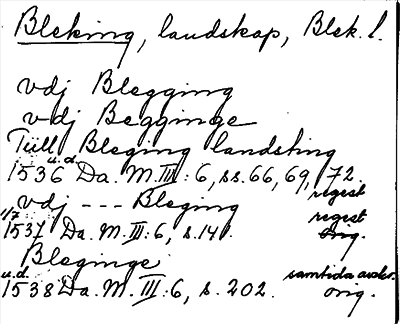 Bleking, landskap, Blek. l.
vdj Blegging
vdj Begginge
Tiill Bleging landsting
1536 u.d. Da. M. III: 6, ss. 66, 69, 72.
regest
vdj --- Bleging
regest
1/7 1537 Da. M. III: 6, s. 141. orig.
Bleginge
samtida avskr.
u.d. 1538 Da. M. III: 6, s. 202. orig.